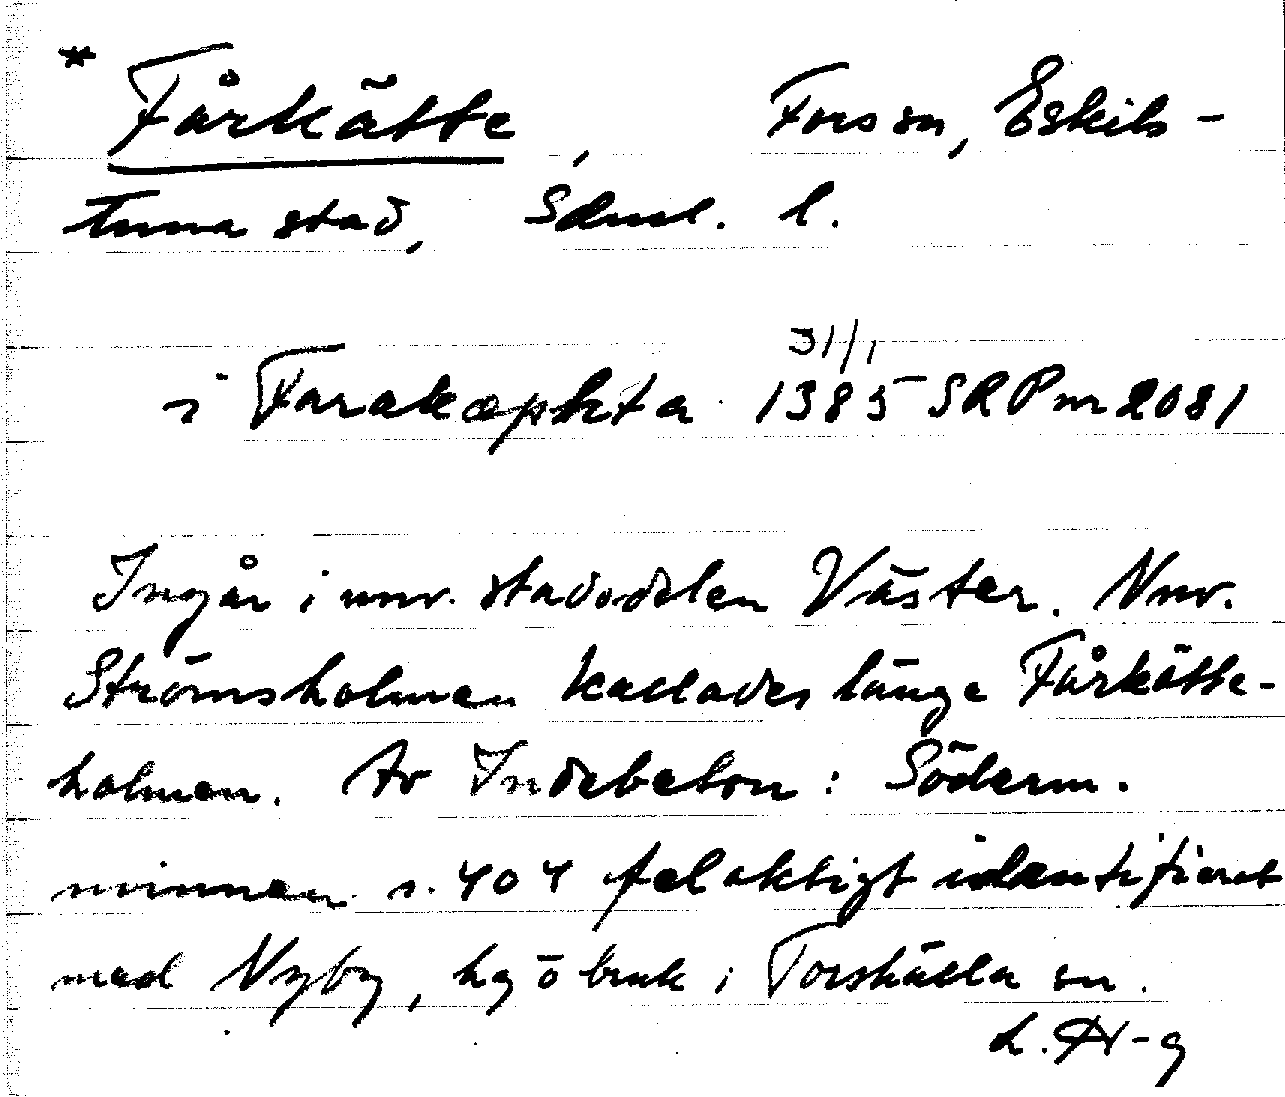 * Fårkätte, Fors sn, Eskils-
tuna stad, Södml. l.
31/1
i Farakæpkta 1385 SRP nr 2081
Ingår i nuv. stadsdelen Väster. Nuv.
Strömsholmen kallades länge Fårkätte-
holmen. Av Indebetou: Söderm.
minnen s. 404 felaktigt identifierat
med Nyby, hg o bruk i Torshälla sn.